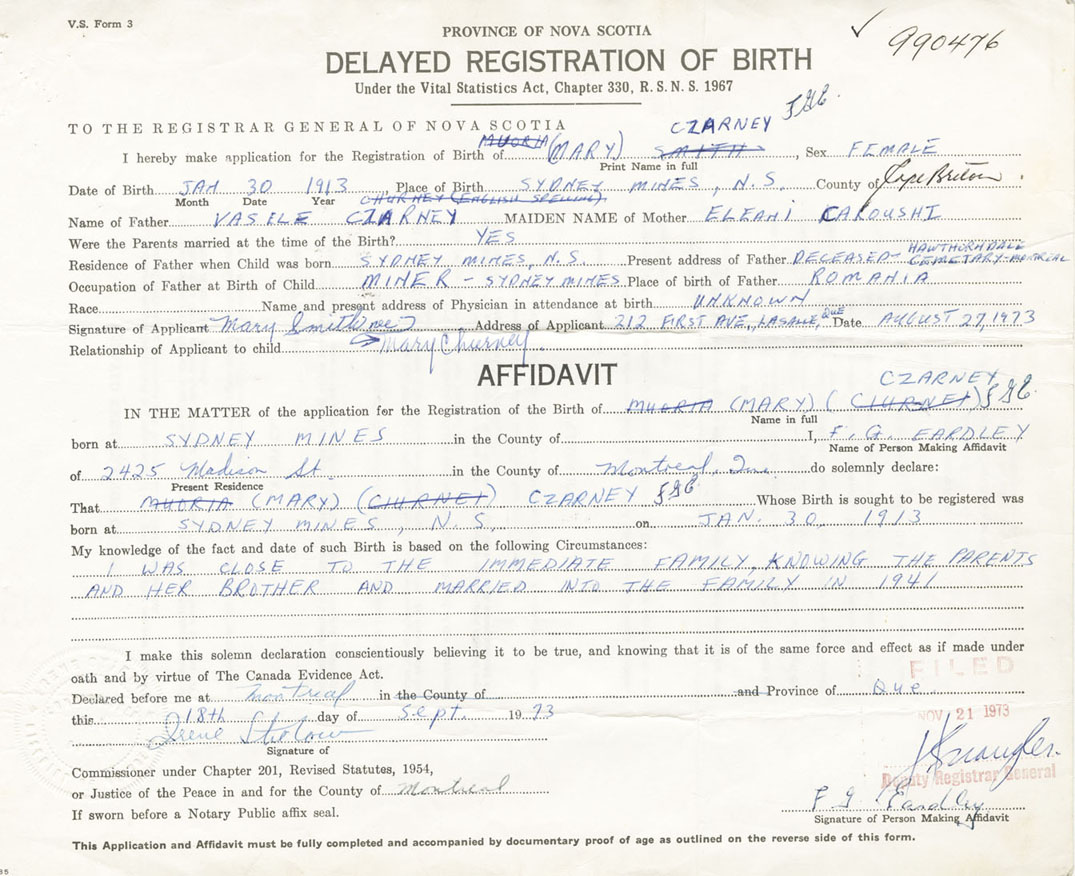 V.S. Form 3
PROVINCE OF NOVA SCOTIA
990476
DELAYED REGISTRATION OF BIRTH
Under the Vital Statistics Act, Chapter 330, R.S.N.S. 1967
TO THE REGISTRAR GENERAL OF NOVA SCOTIA CZARNEY
I hereby make application for the Registration of Birth of MUORIA (MARY) SMITH, Sex FEMALE
Print Name in full
Date of Birth JAN 30 1913, Place of Birth SYDNEY MINES, N.S. County of Cape Breton
Month Date Year CHURNEY (ENGLISH SPELLING)
Name of Father VASELE CZARNEY MAIDEN NAME of Mother ELEANI CAROUSHI
Were the Parents married at the time of the Birth? YES
Residence of Father when Child was born SYDNEY MINES, N.S. Present address of Father DECEASED - HAWTHORNDALE CEMETARY - MONTREAL
Occupation of Father at Birth of Child MINER - SYDNEY MINES Place of birth of Father ROMANIA
Race Name and present address of Physician in attendance at birth UNKNOWN
Signature of Applicant Mary Smith (me) Address of Applicant 212 FIRST AVE., LASALLE, QUE Date AUGUST 27, 1973
Relationship of Applicant to child Mary Churney
AFFIDAVIT
CZARNEY
IN THE MATTER of the application for the Registration of the Birth of MUORIA (MARY) (CHURNEY) FGE
Name in full
born at SYDNEY MINES in the County of I, F. G. EARDLEY
Name of Person Making Affidavit
of 2425 Madison St. in the County of Montreal, Que. do solemnly declare:
Present Residence
That MUORIA (MARY) (CHURNEY) CZARNEY FGE Whose Birth is sought to be registered was
born at SYDNEY MINES, N.S. on JAN. 30, 1913
My knowledge of the fact and date of such Birth is based on the following Circumstances:
I WAS CLOSE TO THE IMMEDIATE FAMILY, KNOWING THE PARENTS
AND HER BROTHER AND MARRIED INTO THE FAMILY IN 1941
I make this solemn declaration conscientiously believing it to be true, and knowing that it is of the same force and effect as if made under
oath and by virtue of The Canada Evidence Act.
FILED
Declared before me at Montreal in the County of and Province of Que.
this 18th day of Sept. 1973
NOV 21 1973
Irene
Signature of
Commissioner under Chapter 201, Revised Statutes, 1954,
Deputy Registrar General
or Justice of the Peace in and for the County of Montreal
F G Eardley
If sworn before a Notary Public affix seal.
Signature of Person Making Affidavit
This Application and Affidavit must be fully completed and accompanied by documentary proof of age as outlined on the reverse side of this form.